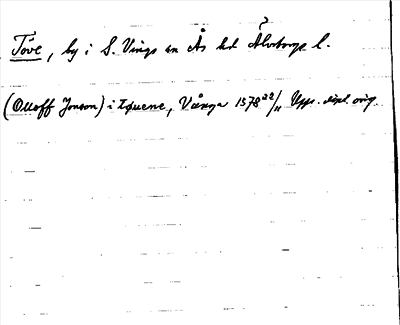 Töve, by i S. Vings sn Ås hd Älvsborgs l.
(Oluff Jonson) i tøuene, Vånga 1578 22/11 Upps. dipl. orig.